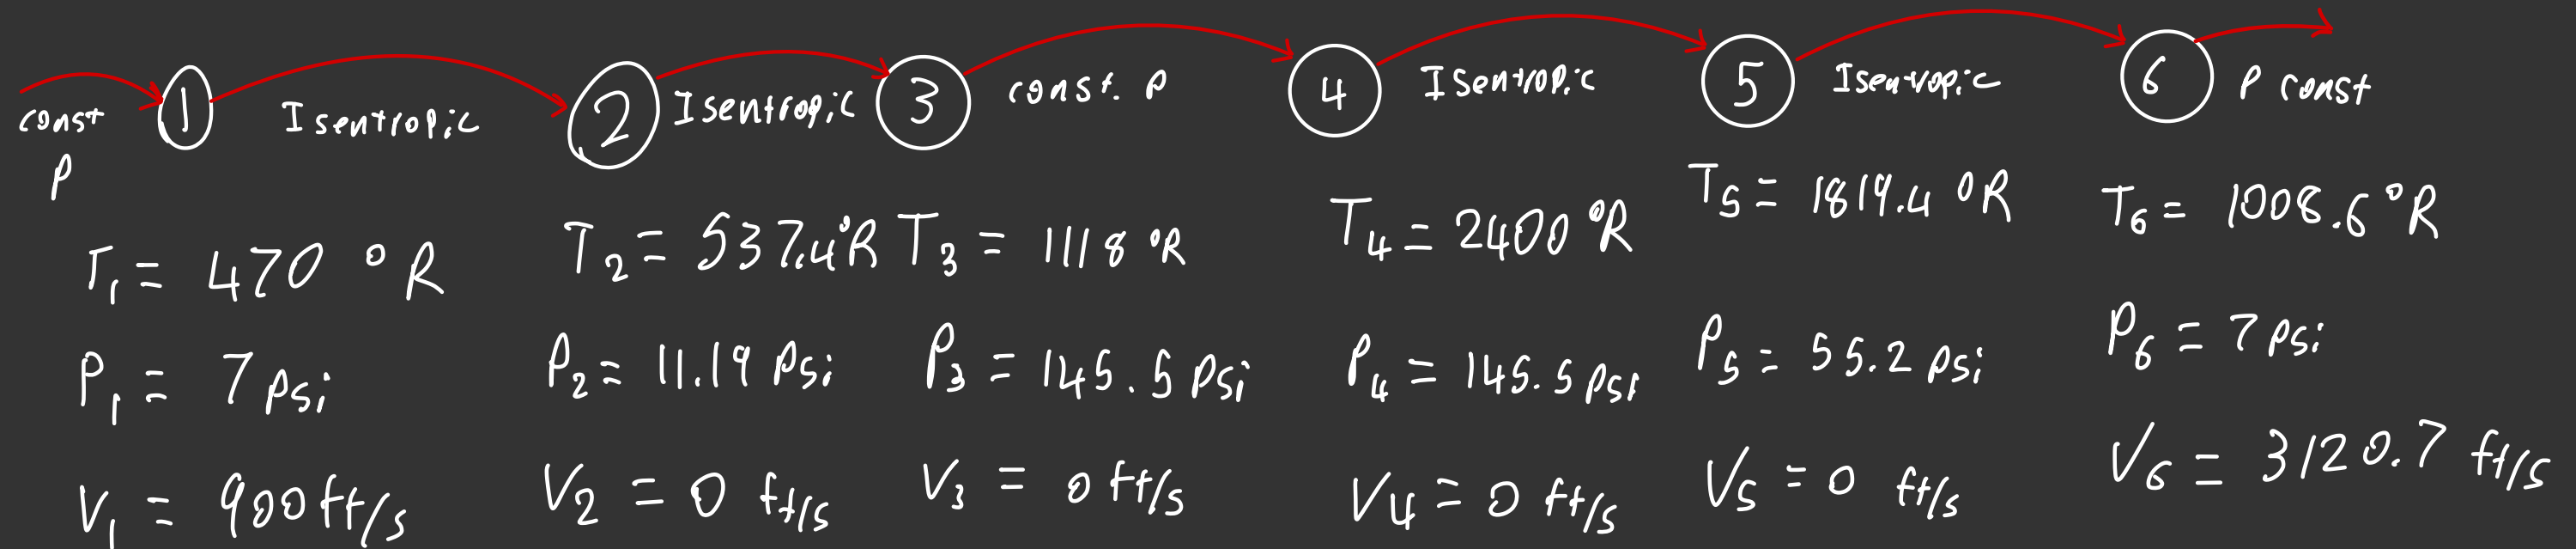 const P
1
Isentropic
2
Isentropic
3
const. P
4
Isentropic
5
Isentropic
6
P const
T₁ = 470 °R
P₁ = 7 psi
V₁ = 900 ft/s
T₂ = 537.4 °R
P₂ = 11.19 psi
V₂ = 0 ft/s
T₃ = 1118 °R
P₃ = 145.5 psi
V₃ = 0 ft/s
T₄ = 2400 °R
P₄ = 145.5 psi
V₄ = 0 ft/s
T₅ = 1819.4 °R
P₅ = 55.2 psi
V₅ = 0 ft/s
T₆ = 1008.6 °R
P₆ = 7 psi
V₆ = 3120.7 ft/s